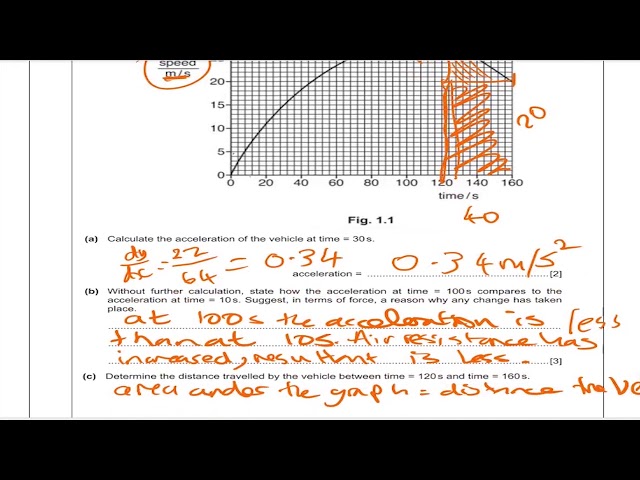 speed
m/s
20
15
10
5
0
0 20 40 60 80 100 120 140 160
time/s
20
40
Fig. 1.1
(a) Calculate the acceleration of the vehicle at time = 30 s.
dy/dx = 22/64 = 0.34
acceleration = 0.34 m/s² [2]
(b) Without further calculation, state how the acceleration at time = 100 s compares to the
acceleration at time = 10 s. Suggest, in terms of force, a reason why any change has taken
place.
at 100s the acceleration is less
than at 10s. Air resistance has
increased, resultant is less. [3]
(c) Determine the distance travelled by the vehicle between time = 120 s and time = 160 s.
area under the graph = distance